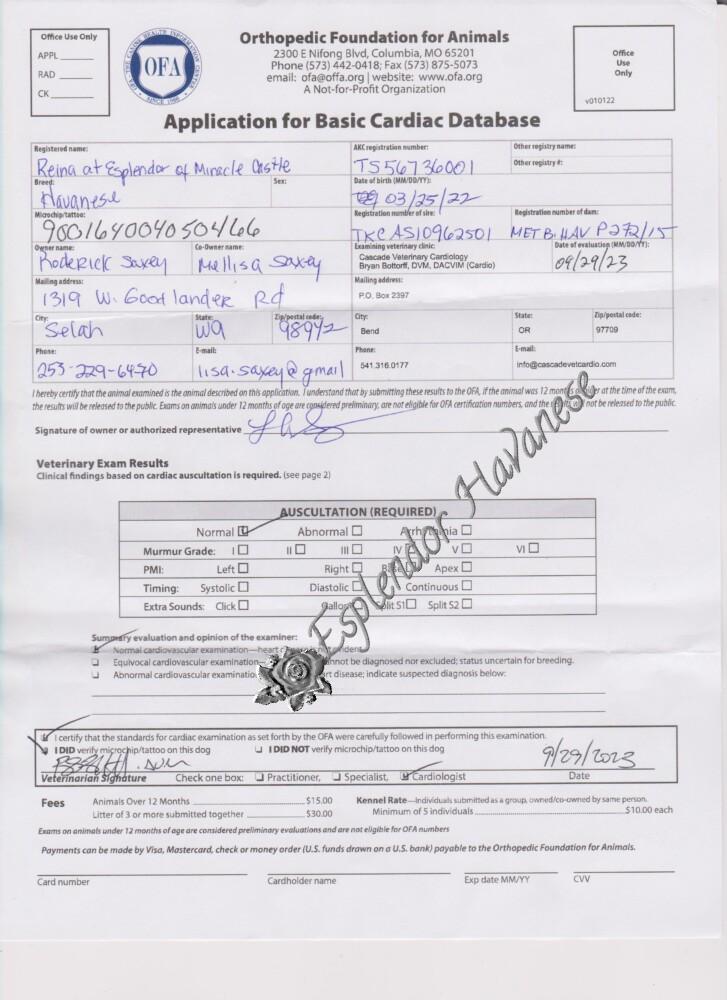 Office Use Only
APPL
RAD
CK
THE CANINE HEALTH INFORMATION CENTER
OFA
SINCE 1966
Orthopedic Foundation for Animals
2300 E Nifong Blvd, Columbia, MO 65201
Phone (573) 442-0418; Fax (573) 875-5073
email: ofa@offa.org | website: www.ofa.org
A Not-for-Profit Organization
Office
Use
Only
v010122
Application for Basic Cardiac Database
Registered name:
Reina at Esplendor of Miracle Castle
AKC registration number:
TS56736001
Other registry name:
Other registry #:
Breed:
Havanese
Sex:
Date of birth (MM/DD/YY):
03/25/22
Microchip/tattoo:
9001640040504166
Registration number of sire:
TKC AS10962501
Registration number of dam:
MET B. HAV P272/15
Owner name:
Roderick Saxey
Co-Owner name:
Mellisa Saxey
Examining veterinary clinic:
Cascade Veterinary Cardiology
Bryan Bottorff, DVM, DACVIM (Cardio)
Date of evaluation (MM/DD/YY):
09/29/23
Mailing address:
1319 W. Goodlander Rd
Mailing address:
P.O. Box 2397
City:
Selah
State:
WA
Zip/postal code:
98942
City:
Bend
State:
OR
Zip/postal code:
97709
Phone:
253-229-6470
E-mail:
lisa.saxey@gmail
Phone:
541.316.0177
E-mail:
info@cascadevetcardio.com
I hereby certify that the animal examined is the animal described on this application. I understand that by submitting these results to the OFA, if the animal was 12 months or older at the time of the exam,
the results will be released to the public. Exams on animals under 12 months of age are considered preliminary, are not eligible for OFA certification numbers, and the results will not be released to the public.
Signature of owner or authorized representative
Esplendor Havanese
Veterinary Exam Results
Clinical findings based on cardiac auscultation is required. (see page 2)
AUSCULTATION (REQUIRED)
Normal Abnormal Arrhythmia
Murmur Grade: I II III IV V VI
PMI: Left Right Base Apex
Timing: Systolic Diastolic Continuous
Extra Sounds: Click Gallop Split S1 Split S2
Summary evaluation and opinion of the examiner:
Normal cardiovascular examination—heart disease is not evident
Equivocal cardiovascular examination— cannot be diagnosed nor excluded; status uncertain for breeding.
Abnormal cardiovascular examination heart disease; indicate suspected diagnosis below:
I certify that the standards for cardiac examination as set forth by the OFA were carefully followed in performing this examination.
I DID verify microchip/tattoo on this dog I DID NOT verify microchip/tattoo on this dog
9/29/2023
Veterinarian Signature Check one box: Practitioner, Specialist, Cardiologist Date
Fees
Animals Over 12 Months $15.00
Litter of 3 or more submitted together $30.00
Kennel Rate—Individuals submitted as a group, owned/co-owned by same person.
Minimum of 5 individuals $10.00 each
Exams on animals under 12 months of age are considered preliminary evaluations and are not eligible for OFA numbers
Payments can be made by Visa, Mastercard, check or money order (U.S. funds drawn on a U.S. bank) payable to the Orthopedic Foundation for Animals.
Card number Cardholder name Exp date MM/YY CVV